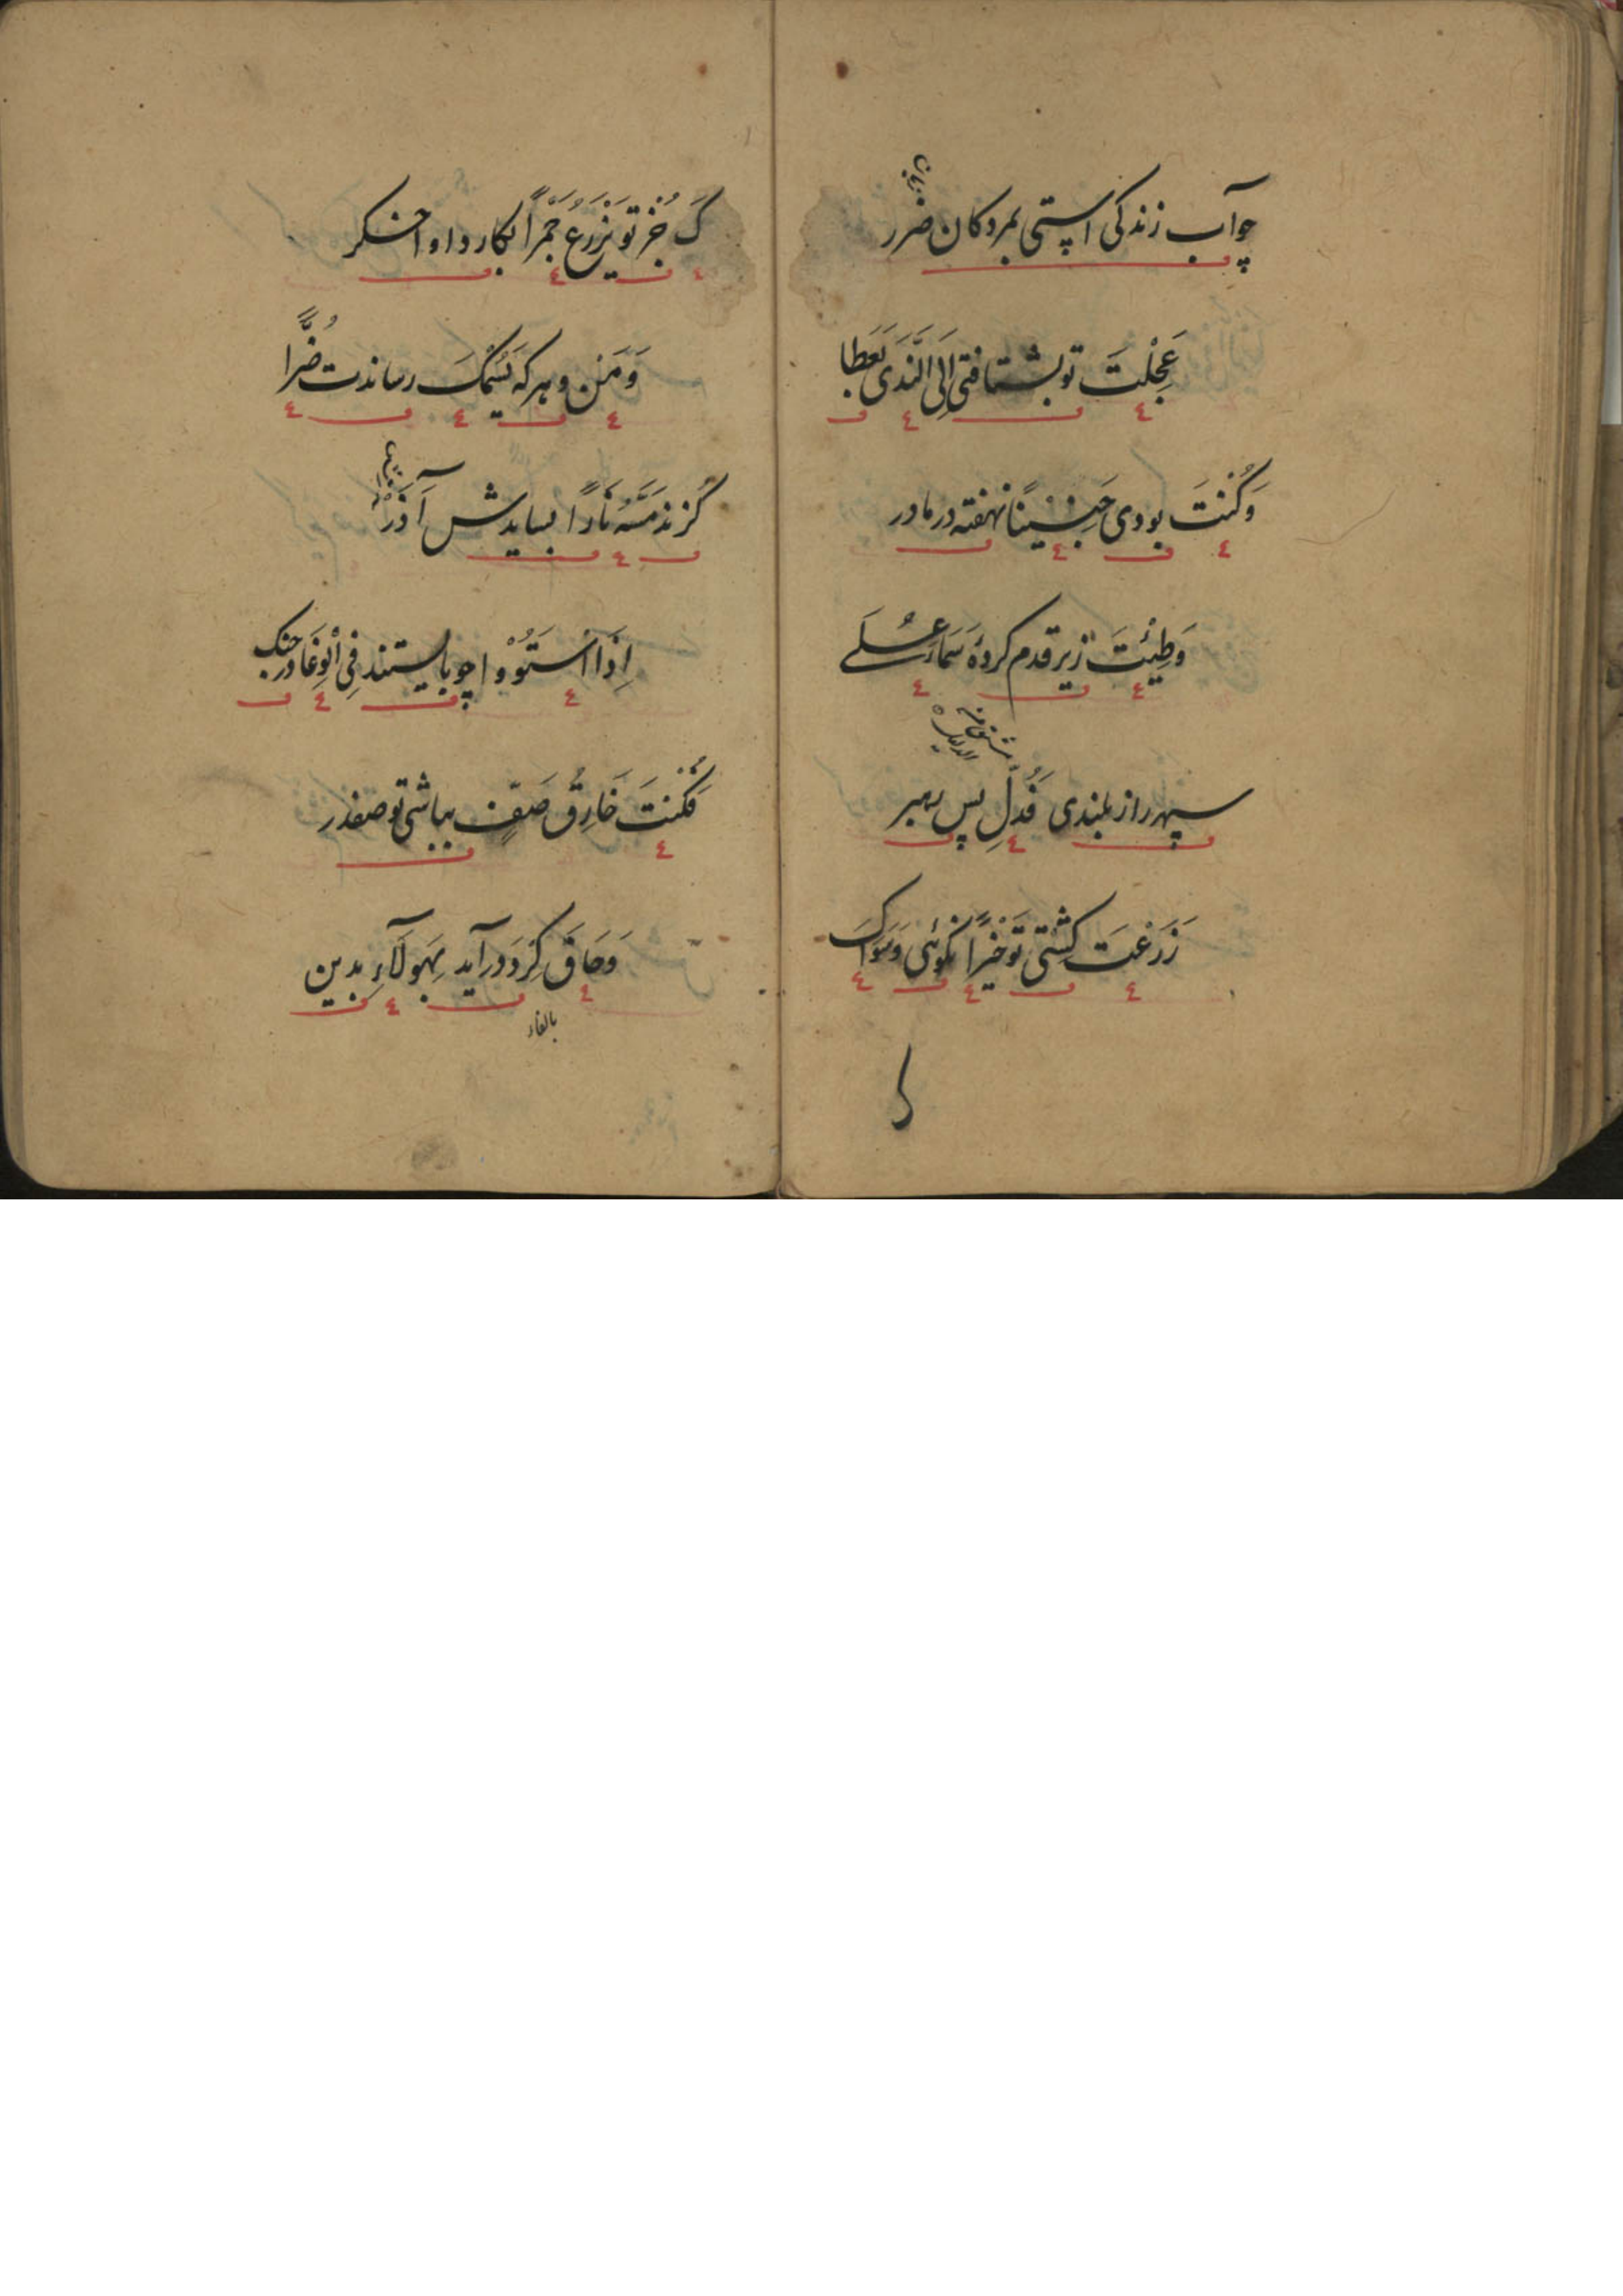 چو آب زندکی استی بمردکان ضرر
زیان
عَجِلْتَ تو بشتافتی اِلَی النَّدَی بَعَطا
وَکُنْتَ بودی جَنِیْنًا نهفته در مادر
وَطِئْتَ زیر قدم کردهٔ سَمَاءَ عُلے
سپهر را از بلندی فَدُلِّ پس رهبر
زَرَعْتَ کِشتی تو خَیْرًا نکوئی وَسِوَاکَ
کَ جُز تو یَزْرَعُ جَمْرًا بکارد او اخسکر
وَمَنْ و هر که یَسُمْکَ رساندت ضُرًّا
کزند مَسَّهُ نَارًا بسایدش آذَرْ
اِذَا اسْتَوُوْا چو بایستند فِی الْوِغَا در جنک
فَکُنْتَ خَارِقُ صَفٍّ بباشی تو صفدر
وَحَاقَ کِرَدْ در آید بِهَولَآءِ بدین
بالفاء